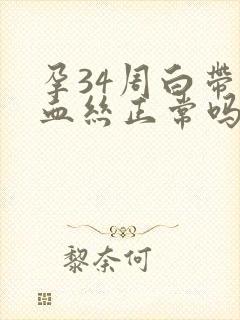 孕34周白带
血丝正常吗
黎奈何